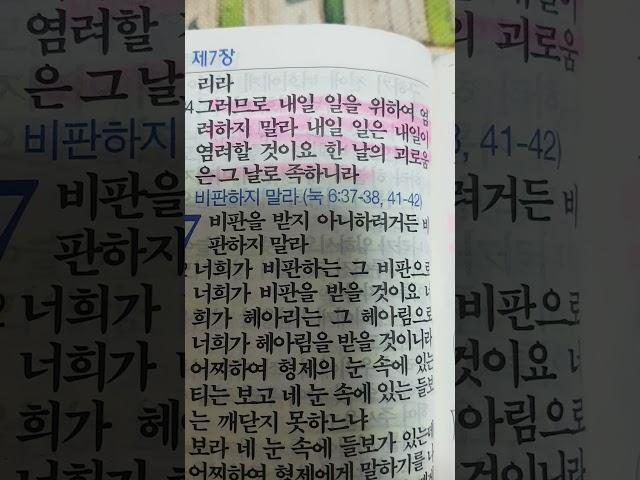 제7장
리라
4그러므로 내일 일을 위하여 염
려하지 말라 내일 일은 내일이
염려할 것이요 한 날의 괴로움
은 그 날로 족하니라
비판하지 말라 (눅 6:37-38, 41-42)
7 비판을 받지 아니하려거든 비
판하지 말라
2 너희가 비판하는 그 비판으로
너희가 비판을 받을 것이요 너
희가 헤아리는 그 헤아림으로
너희가 헤아림을 받을 것이니라
어찌하여 형제의 눈 속에 있는
티는 보고 네 눈 속에 있는 들보
는 깨닫지 못하느냐
보라 네 눈 속에 들보가 있는데
어찌하여 형제에게 말하기를